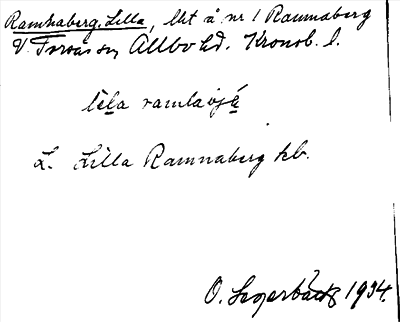 Ramnaberg, Lilla, lht å nr 1 Ramnaberg
V. Torsås sn Allbo hd. Kronob. l.
lɩla ramlabjä
L. Lilla Ramnaberg hb.
O. Lagerbäck 1934.